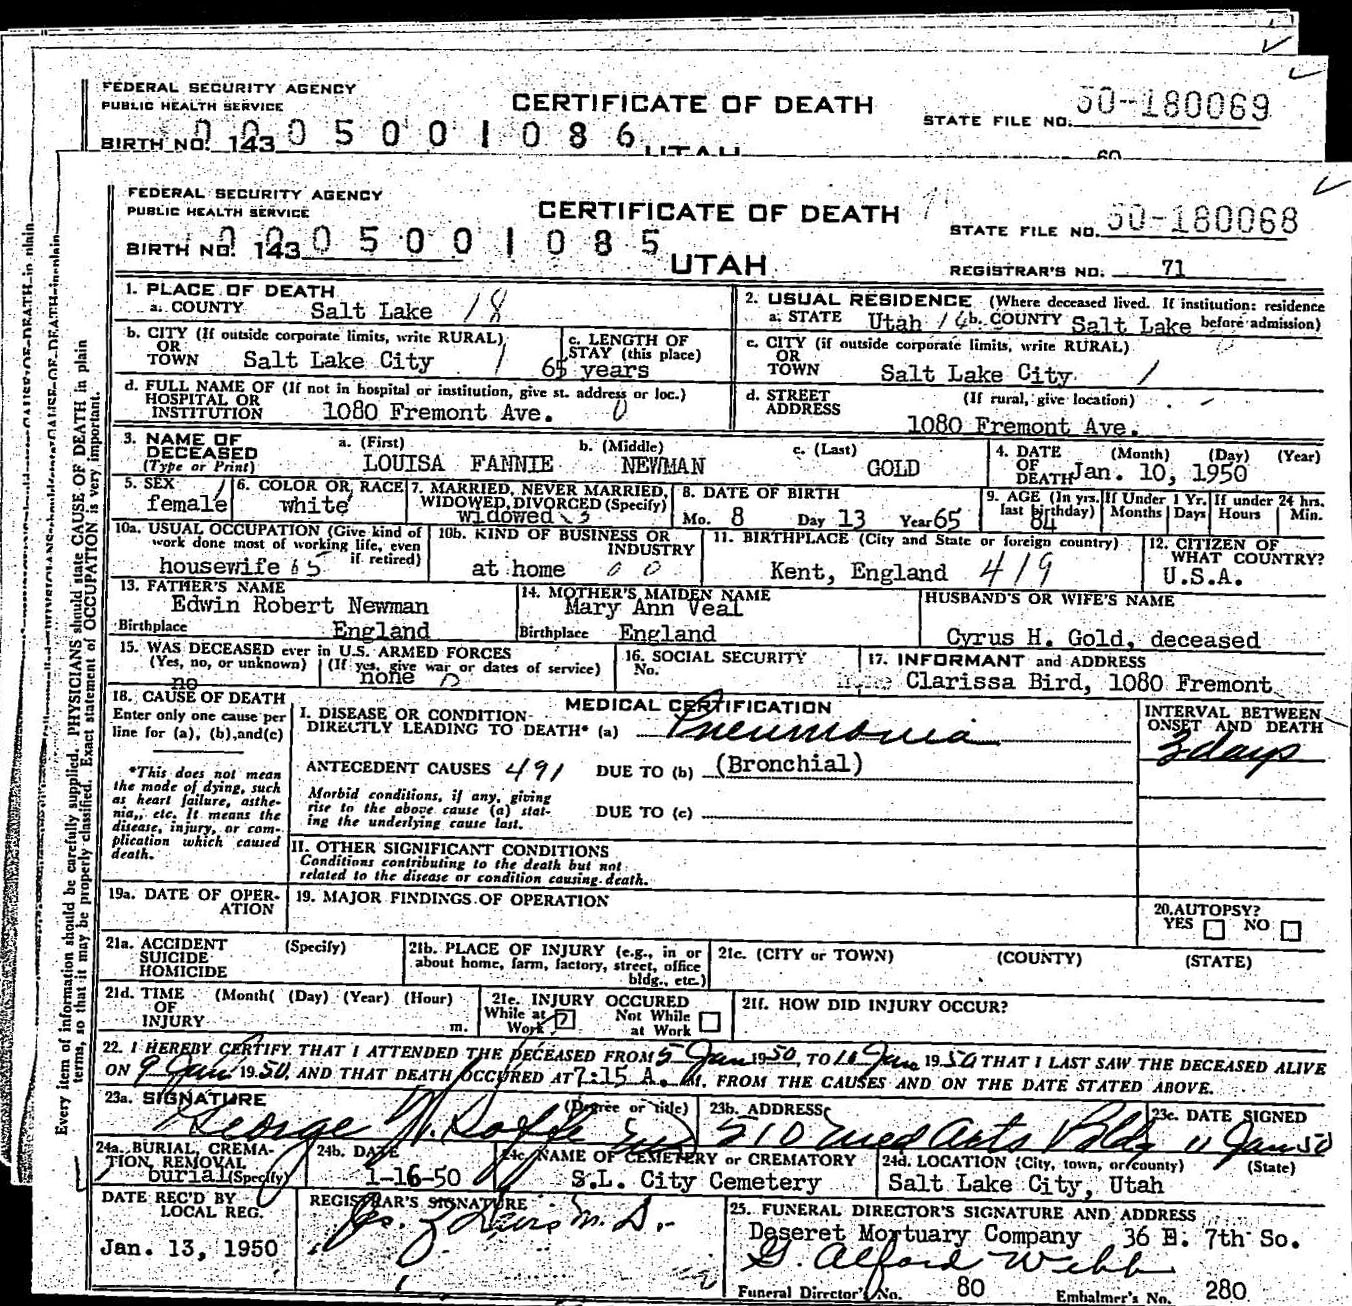 FEDERAL SECURITY AGENCY
PUBLIC HEALTH SERVICE
CERTIFICATE OF DEATH
STATE FILE NO. 50-180069
BIRTH NO. 143 0005001086
UTAH
60
FEDERAL SECURITY AGENCY
PUBLIC HEALTH SERVICE
CERTIFICATE OF DEATH
STATE FILE NO. 50-180068
BIRTH NO. 143 0005001085
UTAH
REGISTRAR'S NO. 71
1. PLACE OF DEATH
a. COUNTY Salt Lake 18
2. USUAL RESIDENCE (Where deceased lived. If institution: residence before admission)
a. STATE Utah b. COUNTY Salt Lake
b. CITY (If outside corporate limits, write RURAL)
OR TOWN Salt Lake City 1
c. LENGTH OF STAY (this place)
65 years
c. CITY (if outside corporate limits, write RURAL)
OR TOWN Salt Lake City 1
d. FULL NAME OF (If not in hospital or institution, give st. address or loc.)
HOSPITAL OR INSTITUTION 1080 Fremont Ave. 0
d. STREET ADDRESS (If rural, give location)
1080 Fremont Ave.
3. NAME OF DECEASED (Type or Print)
a. (First) b. (Middle) c. (Last)
LOUISA FANNIE NEWMAN GOLD
4. DATE OF DEATH (Month) (Day) (Year)
Jan. 10, 1950
5. SEX female
6. COLOR OR RACE white
7. MARRIED, NEVER MARRIED, WIDOWED, DIVORCED (Specify)
widowed 3
8. DATE OF BIRTH
Mo. 8 Day 13 Year 65
9. AGE (In yrs. last birthday) 84
If Under 1 Yr. Months Days
If under 24 hrs. Hours Min.
10a. USUAL OCCUPATION (Give kind of work done most of working life, even if retired)
housewife 65
10b. KIND OF BUSINESS OR INDUSTRY
at home 00
11. BIRTHPLACE (City and State or foreign country)
Kent, England 419
12. CITIZEN OF WHAT COUNTRY?
U.S.A.
13. FATHER'S NAME
Edwin Robert Newman
Birthplace England
14. MOTHER'S MAIDEN NAME
Mary Ann Veal
Birthplace England
HUSBAND'S OR WIFE'S NAME
Cyrus H. Gold, deceased
15. WAS DECEASED ever in U.S. ARMED FORCES
(Yes, no, or unknown) (If yes, give war or dates of service)
no none
16. SOCIAL SECURITY No.
17. INFORMANT and ADDRESS
Clarissa Bird, 1080 Fremont
18. CAUSE OF DEATH
Enter only one cause per line for (a), (b), and (c)
*This does not mean the mode of dying, such as heart failure, asthenia, etc. It means the disease, injury, or complication which caused death.
MEDICAL CERTIFICATION
I. DISEASE OR CONDITION DIRECTLY LEADING TO DEATH* (a) Pneumonia
ANTECEDENT CAUSES 491 DUE TO (b) (Bronchial)
Morbid conditions, if any, giving rise to the above cause (a) stating the underlying cause last.
DUE TO (c)
INTERVAL BETWEEN ONSET AND DEATH
3 days
II. OTHER SIGNIFICANT CONDITIONS
Conditions contributing to the death but not related to the disease or condition causing death.
19a. DATE OF OPERATION
19. MAJOR FINDINGS OF OPERATION
20. AUTOPSY?
YES NO
21a. ACCIDENT SUICIDE HOMICIDE (Specify)
21b. PLACE OF INJURY (e.g., in or about home, farm, factory, street, office bldg., etc.)
21c. (CITY or TOWN) (COUNTY) (STATE)
21d. TIME OF INJURY (Month( (Day) (Year) (Hour) m.
21e. INJURY OCCURED
While at Work Not While at Work
21f. HOW DID INJURY OCCUR?
22. I HEREBY CERTIFY THAT I ATTENDED THE DECEASED FROM 5 Jan 1950, TO 10 Jan 1950 THAT I LAST SAW THE DECEASED ALIVE
ON 9 Jan 1950, AND THAT DEATH OCCURED AT 7:15 A. M. FROM THE CAUSES AND ON THE DATE STATED ABOVE.
23a. SIGNATURE (Degree or title)
George
23b. ADDRESS
510 Med Arts Bldg
23c. DATE SIGNED
11 Jan 50
24a. BURIAL, CREMATION, REMOVAL (Specify)
burial
24b. DATE
1-16-50
24c. NAME OF CEMETERY or CREMATORY
S.L. City Cemetery
24d. LOCATION (City, town, or county) (State)
Salt Lake City, Utah
DATE REC'D BY LOCAL REG.
Jan. 13, 1950
REGISTRAR'S SIGNATURE
M.D.
25. FUNERAL DIRECTOR'S SIGNATURE AND ADDRESS
Deseret Mortuary Company 36 E. 7th So.
G. Alford Webb
Funeral Director's No. 80 Embalmer's No. 280
Every item of information should be carefully supplied. PHYSICIANS should state CAUSE OF DEATH in plain
terms, so that it may be properly classified. Exact statement of OCCUPATION is very important.